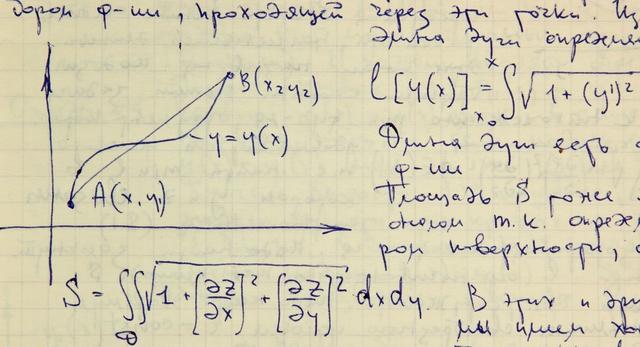 ром ф-ии, проходящей через эти точки. Из
длина дуги определ
B(x₂y₂)
l[y(x)] = ∫ₓ₀ˣ √1+(y')²
y=y(x)
Длина дуги есть
ф-ии
A(x, y₁)
Площадь S тоже
т.к. опреде
поверхности,
S = ∬_D √1 + [∂Z/∂x]² + [∂Z/∂y]² dxdy. В этих и
мы имеем